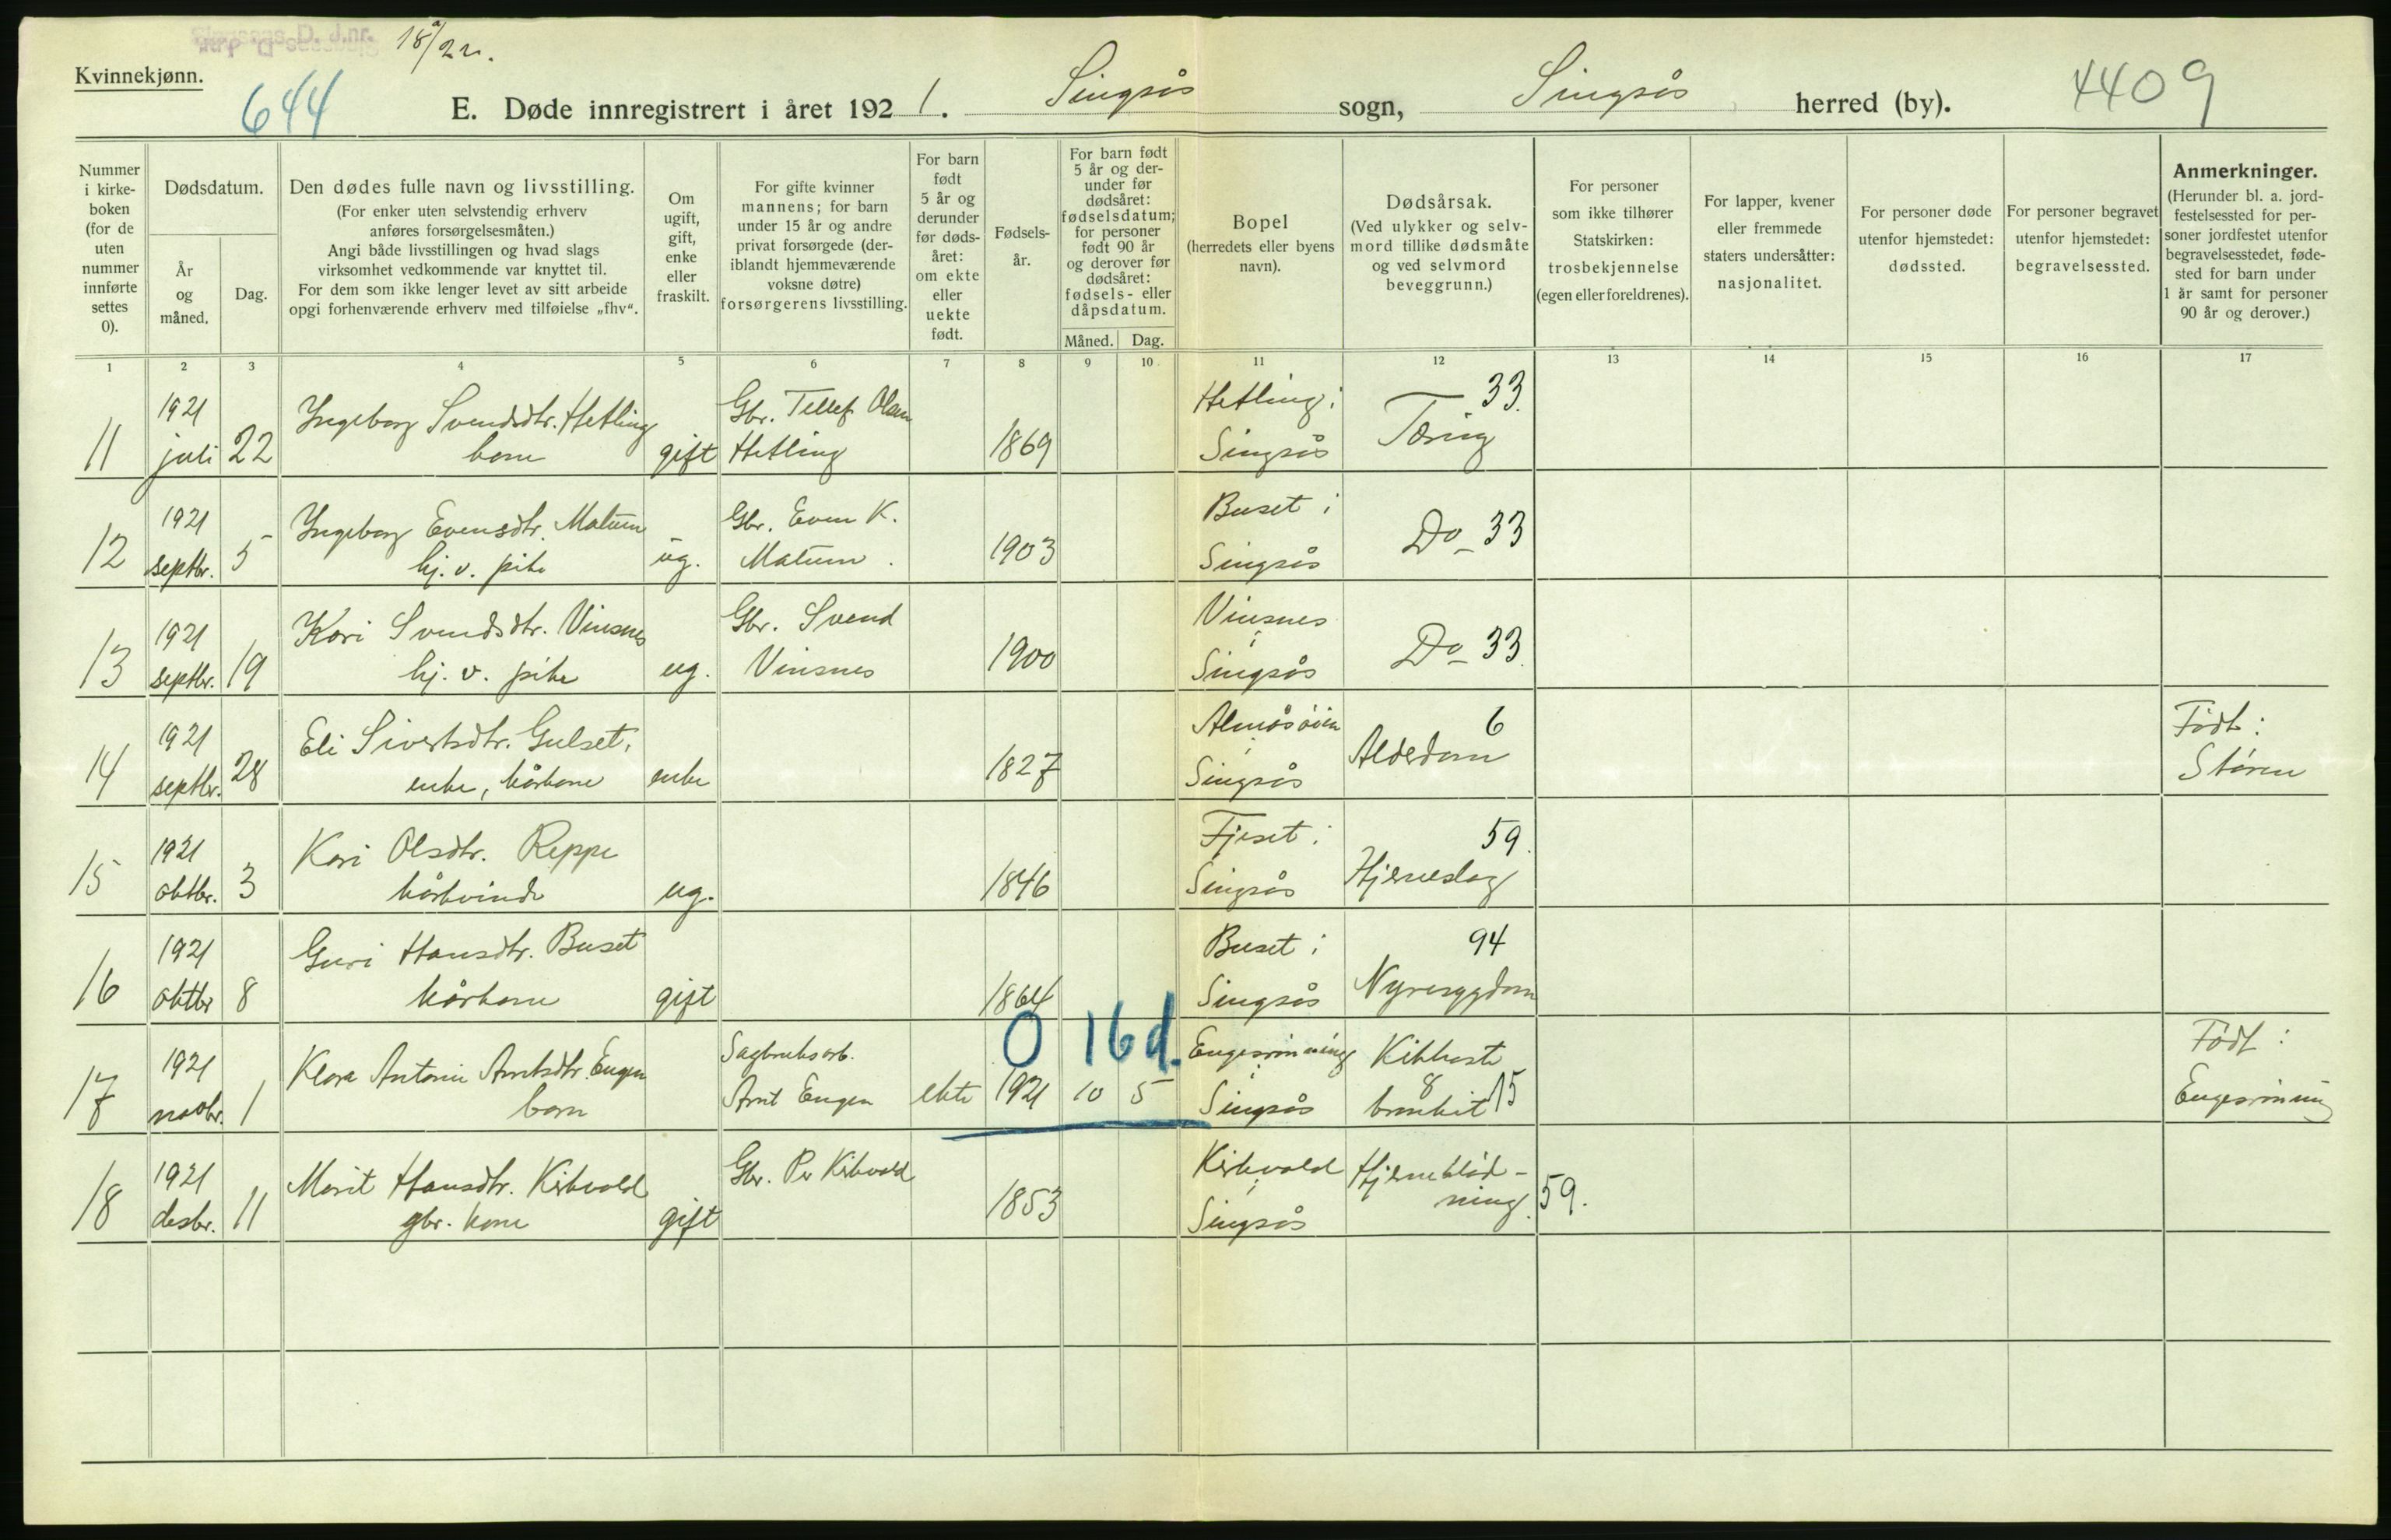 Kvinnekjønn.
644
18/2 22.
E. Døde innregistrert i året 1921. Singsås sogn, Singsås herred (by).
4409
Nummer i kirkeboken (for de uten nummer innførte settes 0).
Dødsdatum.
År og måned.
Dag.
Den dødes fulle navn og livsstilling.
(For enker uten selvstendig erhverv anføres forsørgelsesmåten.)
Angi både livsstillingen og hvad slags virksomhet vedkommende var knyttet til.
For dem som ikke lenger levet av sitt arbeide opgi forhenværende erhverv med tilføielse „fhv“.
Om ugift, gift, enke eller fraskilt.
For gifte kvinner mannens; for barn under 15 år og andre privat forsørgede (deriblandt hjemmeværende voksne døtre) forsørgerens livsstilling.
For barn født 5 år og derunder før dødsåret: om ekte eller uekte født.
Fødselsår.
For barn født 5 år og derunder før dødsåret: fødselsdatum; for personer født 90 år og derover før dødsåret: fødsels- eller dåpsdatum.
Måned. Dag.
Bopel
(herredets eller byens navn).
Dødsårsak.
(Ved ulykker og selvmord tillike dødsmåte og ved selvmord beveggrunn.)
For personer som ikke tilhører Statskirken: trosbekjennelse (egen eller foreldrenes).
For lapper, kvener eller fremmede staters undersåtter: nasjonalitet.
For personer døde utenfor hjemstedet: dødssted.
For personer begravet utenfor hjemstedet: begravelsessted.
Anmerkninger.
(Herunder bl. a. jordfestelsessted for personer jordfestet utenfor begravelsesstedet, fødested for barn under 1 år samt for personer 90 år og derover.)
1 2 3 4 5 6 7 8 9 10 11 12 13 14 15 16 17
11 1921 juli 22 Ingeborg Svendsdtr. Hetling kone gift Gbr. Tellef Olsen Hetling 1869 Hetling i Singsås Tæring 33.
12 1921 septbr. 5 Ingeborg Evensdtr. Matum hj. v. pike ug. Gbr. Even K. Matum. 1903 Buset i Singsås Do 33
13 1921 septbr. 19 Kari Svendsdtr. Vinsnes hj. v. pike ug. Gbr. Svend Vinsnes 1900 Vinsnes i Singsås Do 33.
14 1921 septbr. 28 Eli Sivertsdtr. Gulset, enke, kårkone enke 1827 Almåsøien i Singsås Alderdom 6 Født: Støren
15 1921 oktbr. 3 Kari Olsdtr. Reppe kårkvinde ug. 1846 Fjeset i Singsås Hjerneslag 59.
16 1921 oktbr 8 Guri Hansdtr. Buset kårkone gift 1864 Buset i Singsås Nyresygdom 94
17 1921 novbr. 1 Klara Antonie Arntsdtr. Engen barn Sagbruksarb. Arnt Engen ekte 1921 10 5 0 16 d. i Singsås Kikhoste 8 bronkit 15 Født:
18 1921 desbr. 11 Marit Hansdtr. Kirkvold gbr. kone gift Gbr. Per Kirkvold 1853 Kirkvold i Singsås Hjerneblødning. 59.